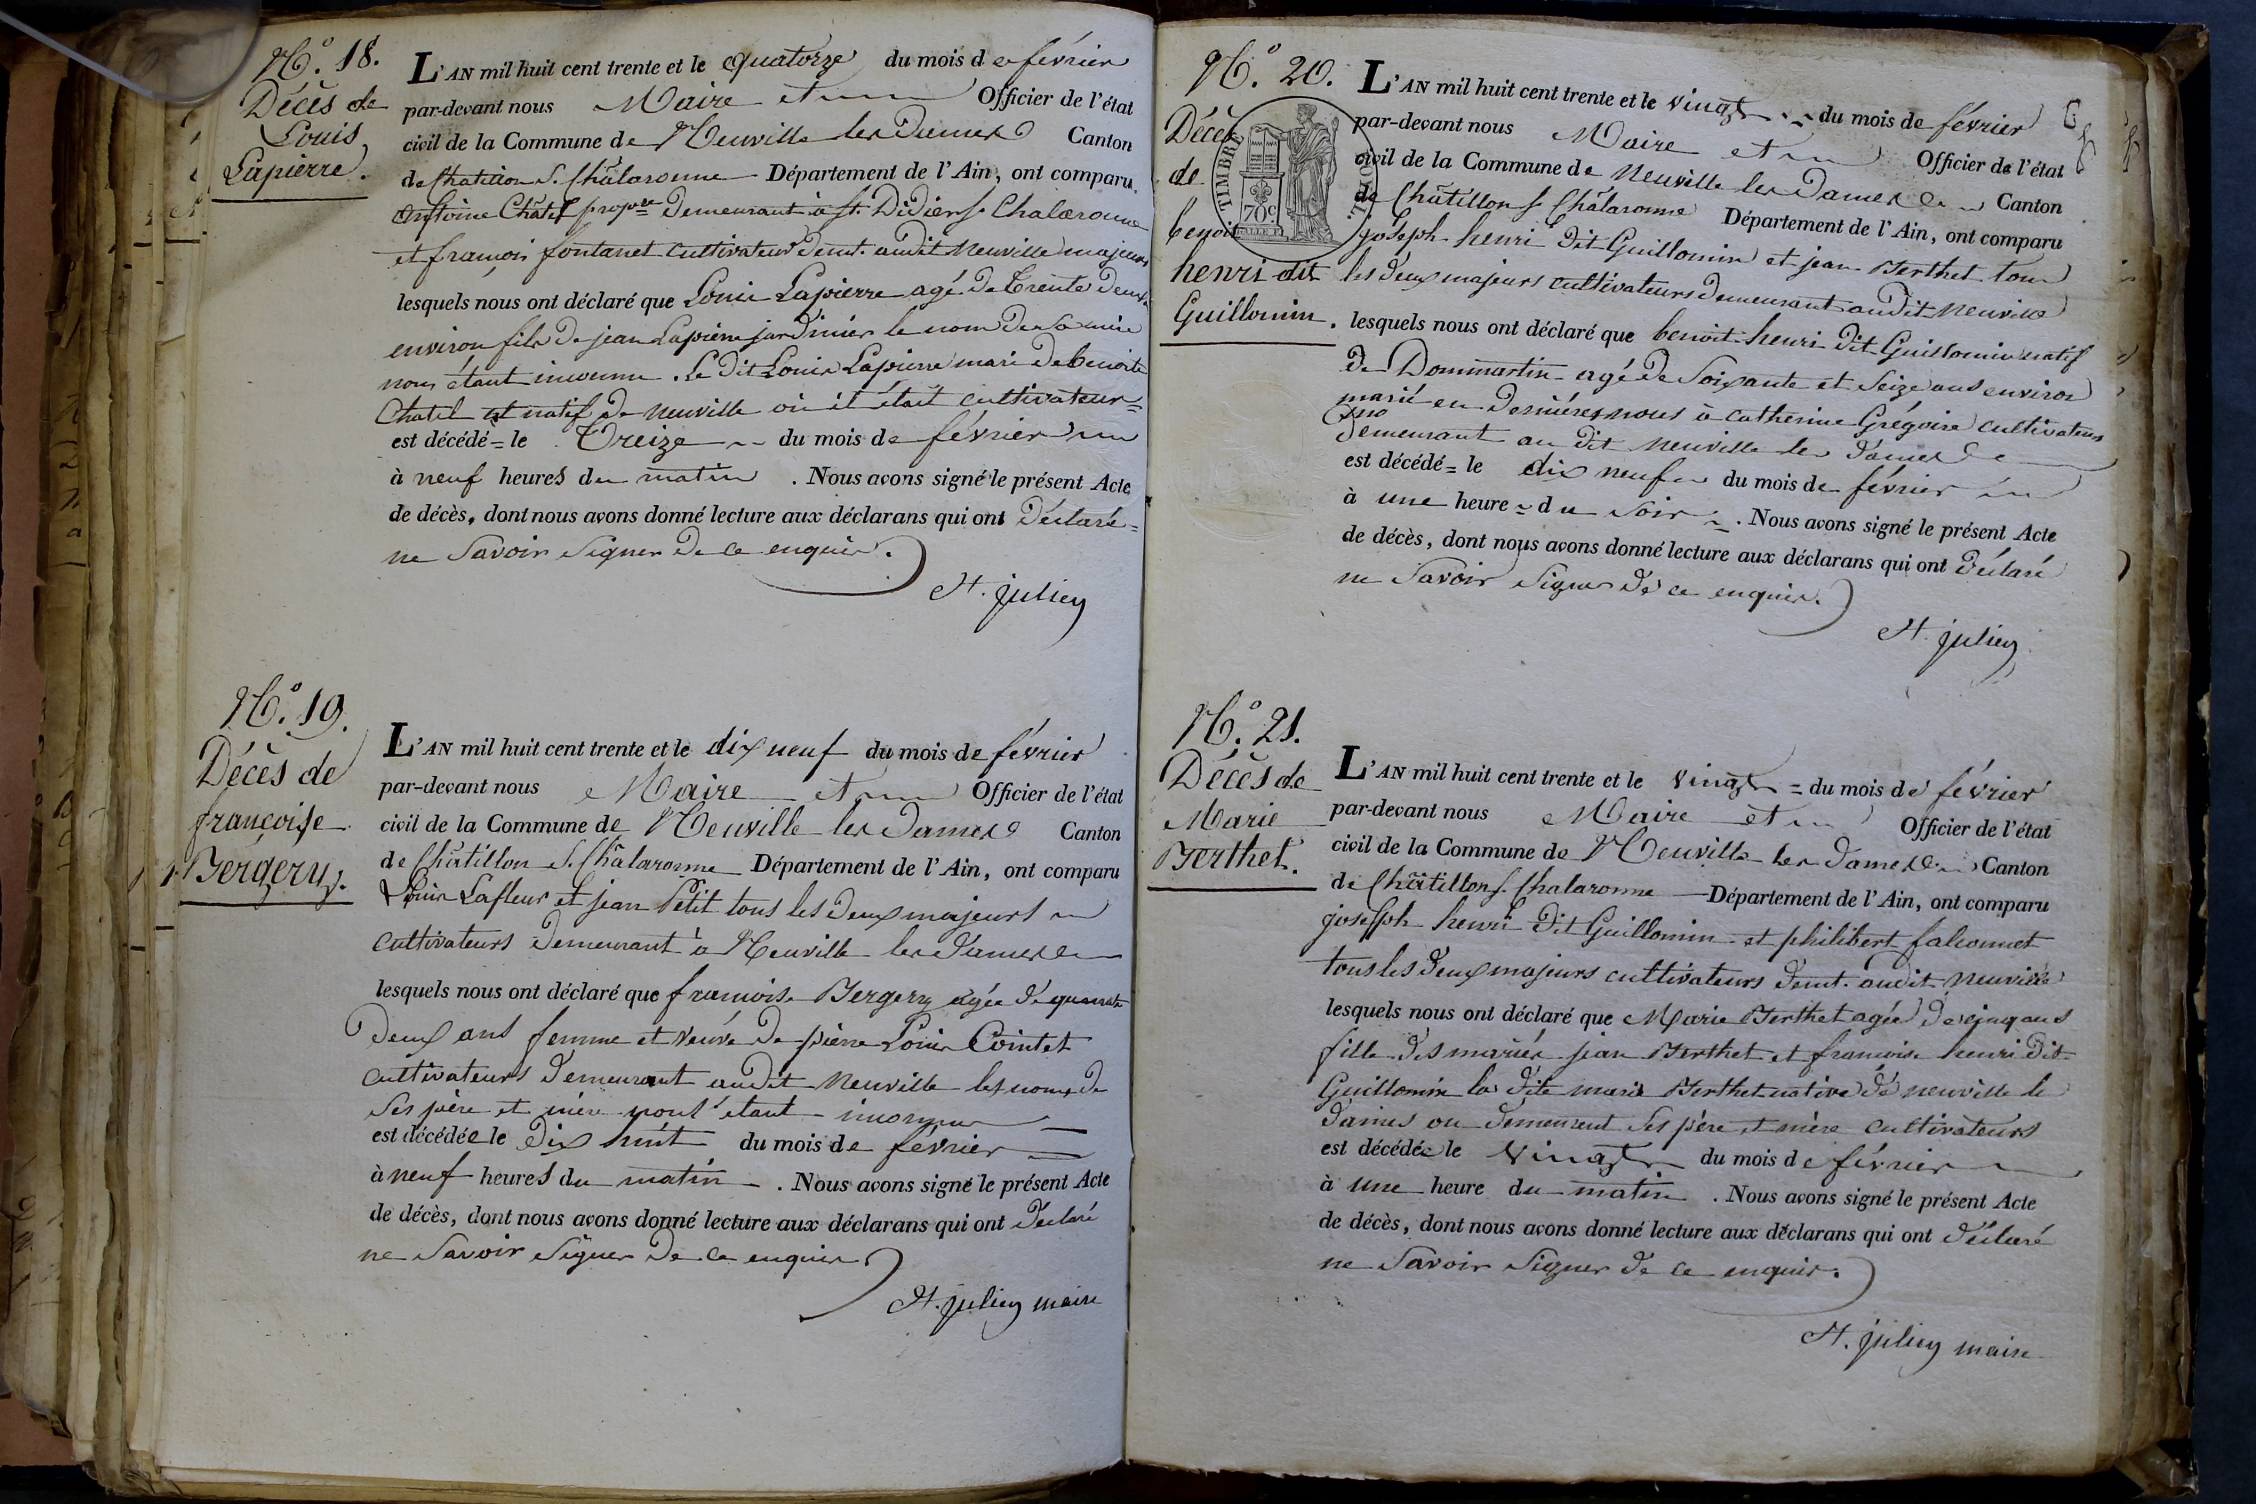 N.º 18.
Décès de
Louis
Lapierre.
L'AN mil huit cent trente et le quatorze du mois de février
par-devant nous Maire et Officier de l'état
civil de la Commune de Neuville les Dames Canton
de Chatillon S. Châlaronne Département de l'Ain, ont comparu
antoine Châtel propre demeurant à St. Didier s. Chalaronne
et françois fontanet cultivateur demt. audit neuville majeurs
lesquels nous ont déclaré que Louis Lapierre agé de trente deux
environ fils de jean Lapierre jardinier le nom de sa mère
nous étant inconnu. Le dit Louis Lapierre mari de benoite
Chatel est natif de neuville où il était cultivateur =
est décédé = le Treize du mois de février
à neuf heures du matin . Nous avons signé le présent Acte
de décès, dont nous avons donné lecture aux déclarans qui ont déclaré =
ne Savoir Signer de ce enquis.
St. julien
N.º 19.
Décès de
françoise
Bergery.
L'AN mil huit cent trente et le dix neuf du mois de février
par-devant nous Maire et Officier de l'état
civil de la Commune de Neuville les Dames Canton
de Châtillon S. Châlaronne Département de l'Ain, ont comparu
Louis Lafleur et jean Petit tous les deux majeurs
cultivateurs demeurant à Neuville les dames
lesquels nous ont déclaré que françoise Bergery agée de quarante
deux ans femme et veuve de pierre Louis Cointet
cultivateurs demeurant audit neuville les noms de
ses père et mère nous étant inconnus
est décédée le dix huit du mois de février
à neuf heures du matin . Nous avons signé le présent Acte
de décès, dont nous avons donné lecture aux déclarans qui ont déclaré
ne Savoir Signer de ce enquis
St. julien maire
N.º 20.
Décès
de
benoit
henri dit
Guillomin.
TIMBRE
70c
L'AN mil huit cent trente et le vingt du mois de février
par-devant nous Maire et Officier de l'état
civil de la Commune de Neuville les Dames Canton
de Châtillon s. Châlaronne Département de l'Ain, ont comparu
joseph henri dit Guillomin et jean Berthet tous
les deux majeurs cultivateurs demeurant audit neuville
lesquels nous ont déclaré que benoit henri dit Guillomin natif
de Dommartin agé de Soixante et Seize ans environ
marié en dernières noces à catherine Grégoire cultivateurs
demeurant au dit neuville les dames
est décédé = le dix neuf du mois de février
à une heure = du Soir . Nous avons signé le présent Acte
de décès, dont nous avons donné lecture aux déclarans qui ont déclaré
ne Savoir Signer de ce enquis.
St. julien
N.º 21.
Décès de
Marie
Berthet.
L'AN mil huit cent trente et le vingt = du mois de février
par-devant nous Maire et Officier de l'état
civil de la Commune de Neuville les dames Canton
de Châtillon s. Chalaronne Département de l'Ain, ont comparu
joseph henri dit Guillomin et philibert falconnet
tous les deux majeurs cultivateurs demt. audit neuville
lesquels nous ont déclaré que Marie Berthet agée de cinq ans
fille des mariés jean Berthet et françoise henri dit
Guillomin la dite marie Berthet native de neuville le
dames ou demeurent Ses père et mère cultivateurs
est décédée le vingt du mois de février
à une heure du matin . Nous avons signé le présent Acte
de décès, dont nous avons donné lecture aux déclarans qui ont déclaré
ne Savoir Signer de ce enquis.
St. julien maire